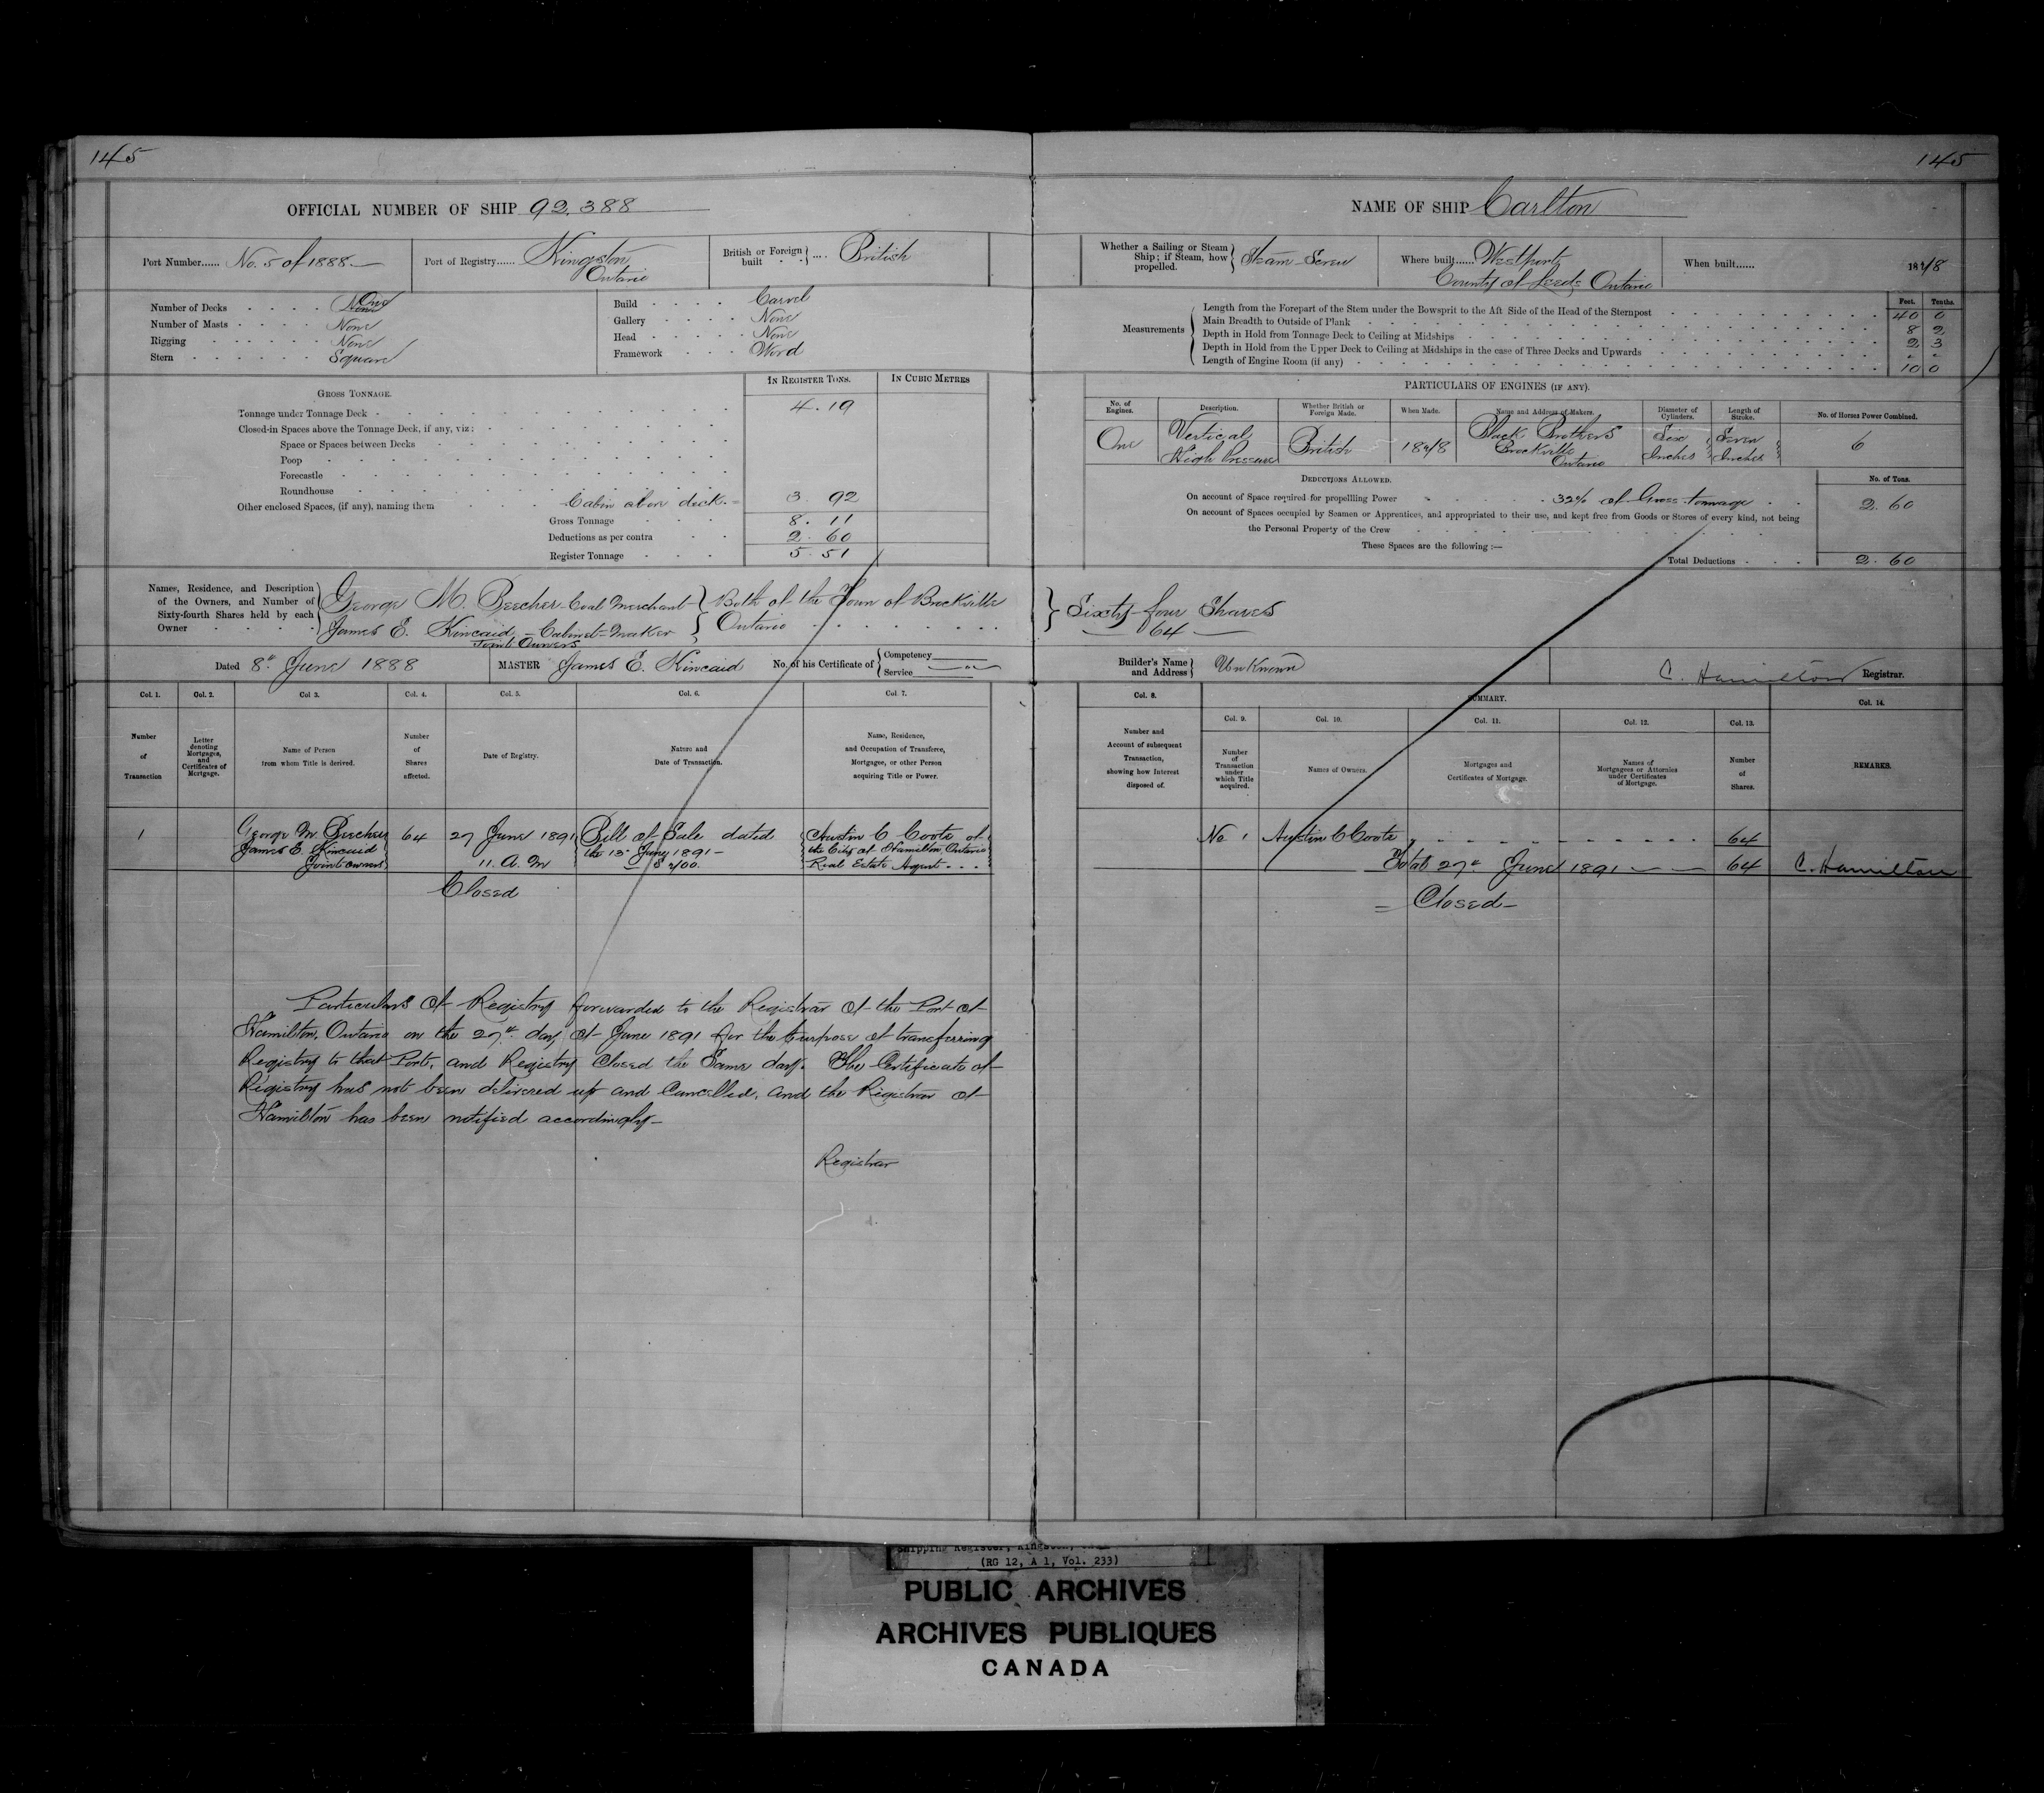 145
145
OFFICIAL NUMBER OF SHIP 92.388
NAME OF SHIP Carlton
Port Number...... No. 5 of 1888
Port of Registry...... Kingston Ontario
British or Foreign built .... British
Whether a Sailing or Steam Ship; if Steam, how propelled. Steam Screw
Where built...... Westport County of Leeds Ontario
When built......
Number of Decks One
Number of Masts None
Rigging None
Stern Square
Build Carvel
Gallery None
Head None
Framework Wood
Measurements
Feet. Tenths.
Length from the Forepart of the Stem under the Bowsprit to the Aft Side of the Head of the Sternpost 40 0
Main Breadth to Outside of Plank 8 2
Depth in Hold from Tonnage Deck to Ceiling at Midships 2 3
Depth in Hold from the Upper Deck to Ceiling at Midships in the case of Three Decks and Upwards " "
Length of Engine Room (if any) 10 0
GROSS TONNAGE.
IN REGISTER TONS.
IN CUBIC METRES
Tonnage under Tonnage Deck 4.19
Closed-in Spaces above the Tonnage Deck, if any, viz:
Space or Spaces between Decks
Poop
Forecastle
Roundhouse
Other enclosed Spaces, (if any), naming them Cabin above deck 3.92
Gross Tonnage 8.11
Deductions as per contra 2.60
Register Tonnage 5.51
PARTICULARS OF ENGINES (IF ANY).
No. of Engines.
Description.
Whether British or Foreign Made.
When Made.
Name and Address of Makers.
Diameter of Cylinders.
Length of Stroke.
No. of Horses Power Combined.
One
Vertical High Pressure
British
Black Brothers Brockville Ontario
Six Inches
Seven Inches
6
DEDUCTIONS ALLOWED.
No. of Tons.
On account of Space required for propellling Power 32% of Gross tonnage 2.60
On account of Spaces occupied by Seamen or Apprentices, and appropriated to their use, and kept free from Goods or Stores of every kind, not being
the Personal Property of the Crew
These Spaces are the following :—
Total Deductions 2.60
Names, Residence, and Description of the Owners, and Number of Sixty-fourth Shares held by each Owner
George M. Beecher Coal Merchant
James E. Kincaid Cabinet-Maker
Joint Owners
Both of the Town of Brockville
Ontario
Sixty-four Shares
64
Dated 8th June 1888
MASTER James E. Kincaid
No. of his Certificate of Competency Service
Builder's Name and Address Unknown
C. Hamilton Registrar.
Col. 1.
Col. 2.
Col 3.
Col. 4.
Col. 5.
Col. 6.
Col. 7.
Col. 8.
SUMMARY.
Col. 9.
Col. 10.
Col. 11.
Col. 12.
Col. 13.
Col. 14.
Number of Transaction
Letter denoting Mortgages, and Certificates of Mortgage.
Name of Person from whom Title is derived.
Number of Shares affected.
Date of Registry.
Nature and Date of Transaction.
Name, Residence, and Occupation of Transferee, Mortgagee, or other Person acquiring Title or Power.
Number and Account of subsequent Transaction, showing how Interest disposed of.
Number of Transaction under which Title acquired.
Names of Owners.
Mortgages and Certificates of Mortgage.
Names of Mortgagees or Attornies under Certificates of Mortgage.
Number of Shares.
REMARKS.
1
George M. Beecher
James E. Kincaid
Joint owners
64
27 June 1891
11. A. M
Bill of Sale dated
the 15 June 1891
Austin C Coote of
the City of Hamilton, Ontario
Real Estate Agent
No 1 Austin C Coote 64
Total 27th June 1891 64 C. Hamilton
Closed
Closed
Particulars of Registry forwarded to the Registrar of the Port of
Hamilton, Ontario on the 27th day of June 1891 for the purpose of transferring
Registry to that Port, and Registry Closed the Same day. The Certificate of
Registry has not been delivered up and Cancelled, and the Registrar of
Hamilton has been notified accordingly
Registrar
Shipping Register, Kingston,
(RG 12, A 1, Vol. 233)
PUBLIC ARCHIVES
ARCHIVES PUBLIQUES
CANADA